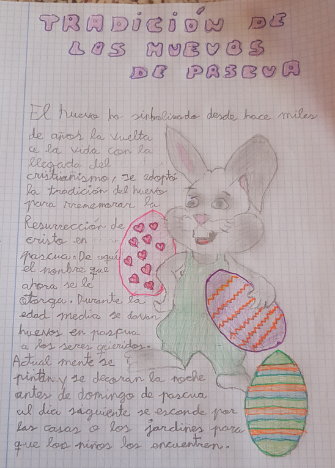 TRADICIÓN DE
LOS HUEVOS
DE PASCUA
El huevo ha simbolizado desde hace miles
de años la vuelta
a la vida con la
llegada del
cristianismo, se adoptó
la tradición del huevo
para rrememorar la
Resurrección de
cristo en
pascua. De aqui
el nombre que
ahora se le
otorga. Durante la
edad media se davan
huevos en pascua
a los seres queridos.
Actual mente se
pintan y se decoran la noche
antes de domingo de pascua
al dia saguiente se esconde por
las casas o los jardines para
que los niños los encuentren.